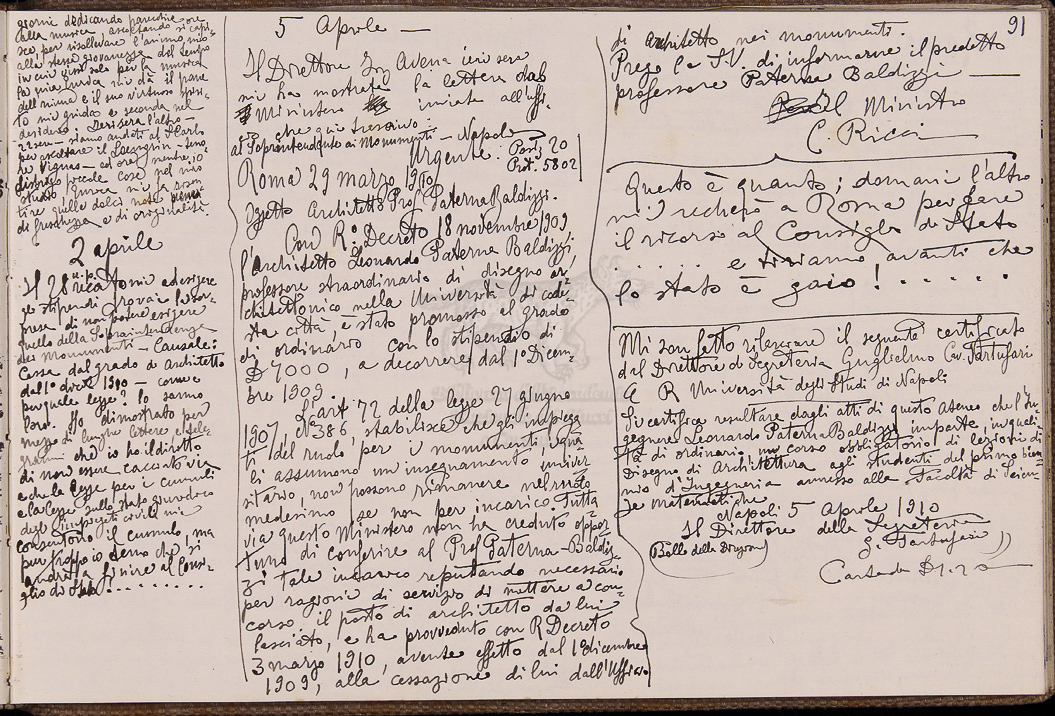 giorni dedicando parecchie ore
alla musica, ascoltando
alla stessa giovanezza del tempo
in cui gissi solo per la musica
la mia mi dà il pane
dell'anima e il suo virtuoso
to mi guida e seconda nel
desiderio. Ieri sera l'altro
22 sera siamo andati al S. Carlo
per ascoltare il Loengrin - teno-
re Vignas - ed ora mentre io
disbrigo piccole cose nel mio
studio, mi fa sen-
tire quelle dolci note piene
di freschezza e di originalità.
2 aprile
Il 28 u.p. recatomi ad esigere
gli stipendi trovai la sor-
presa di non potere esigere
quello della Sopraintendenza
dei Monumenti - Causale:
Cessa dal grado di architetto
dal 1° dicbre 1910 - come e
per quale legge? lo sanno
loro. Ho dimostrato per
mezzo di lunghe lettere e tele-
grammi che io ho il diritto
di non essere cacciato via
e che la legge per i cumuli
e la legge sullo stato giuridico
degli impiegati civili mi
consentono il cumulo, ma
pur troppo io temo che si
andrà a finire al Consi-
glio di Stato. . . . . . . .
5 Aprile —
Il Direttore Ing Avena ieri sera
mi ha mostrato la lettera dal
Ministero inviata all'uffi-
cio che qui trascrivo:
al Soprintendente ai Monumenti - Napoli
Urgente. Posiz 20
Prot. 5802
Roma 29 marzo 1910
Oggetto Architetto Prof. Paterna Baldizzi.
Con R.° Decreto 18 novembre 1909
l'architetto Leonardo Paterna Baldizzi,
professore straordinario di disegno ar-
chitettonico nella Università di code-
sta città, è stato promosso al grado
di ordinario con lo stipendio di
£ 7000, a decorrere dal 1° Dicem-
bre 1909.
L'art. 72 della legge 27 giugno
1907, N° 386, stabilisce che gli impiega-
ti del ruolo per i monumenti, i qua-
li assumono un insegnamento univer-
sitario, non possono rimanere nel ruolo
medesimo se non per incarico. Tutta
via questo Ministero non ha creduto oppor-
tuno di conferire al Prof Paterna-Baldiz-
zi tale incarico reputando necessario
per ragioni di servizio di mettere a con-
corso il posto di architetto da lui
lasciato, e ha provveduto con R Decreto
3 marzo 1910, avente effetto dal 1° dicembre
1909, alla cessazione di lui dall'Ufficio
91
di architetto nei monumenti.
Prego la S.V. di informarne il predetto
professore Paterna Baldizzi —
Il Ministro
C. Ricci
Questo è quanto; domani l'altro
mi recherò a Roma per fare
il ricorso al Consiglio di Stato
. . . . . e tiriamo avanti che
lo stato è gaio ! . . . . .
Mi son fatto rilasciare il seguente certificato
dal Direttore di Segreteria Guglielmo Cav. Tartufari
R Università degli Studi di Napoli
Si certifica risultare dagli atti di questo Ateneo che l'In-
gegnere Leonardo Paterna Baldizzi imparte, in quali-
tà di ordinario, un corso obbligatorio di lezioni di
Disegno di Architettura agli studenti del primo bien-
nio d'Ingegneria annesso alla Facoltà di Scien-
ze matematiche
Napoli 5 Aprile 1910
Il Direttore della Segreteria
(Bollo della Direzione) G. Tartufari